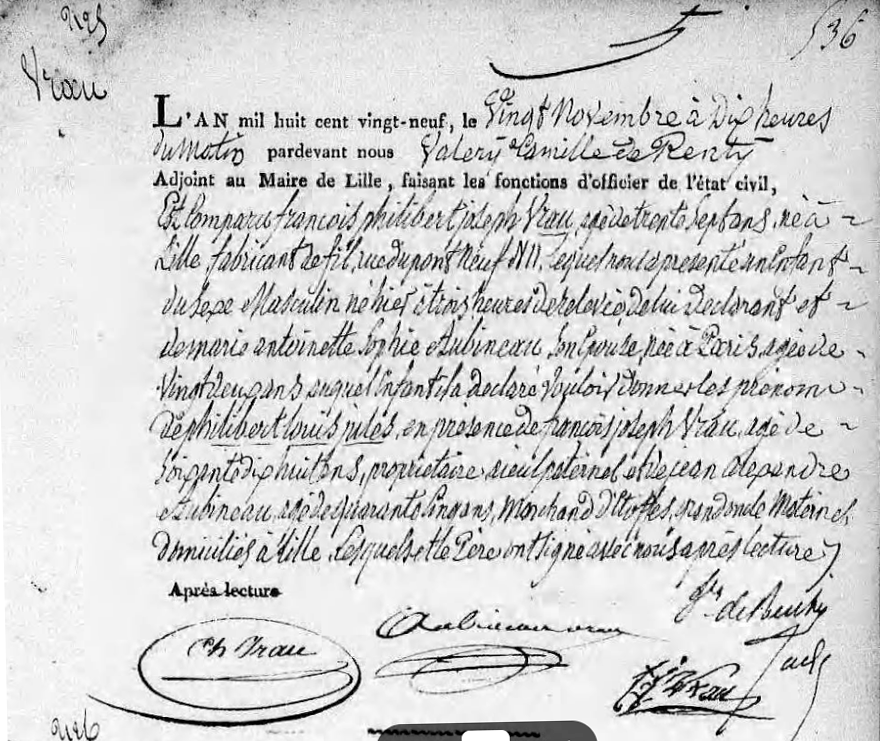 2125
536
Vrau
L'AN mil huit cent vingt-neuf, le Vingt Novembre à Dix heures
du Matin pardevant nous Valery Camille De Renty
Adjoint au Maire de Lille, faisant les fonctions d'officier de l'état civil,
Est Comparu françois philibert joseph Vrau, agé de trente Sept ans, né à
Lille, fabricant de fil, rue du pont Neuf N 11, lequel nous a presenté un Enfant
du Sexe Masculin né hier à trois heures de relevée de lui Declarant et
de marie antoinette Sophie Aubineau, Son Epouse, née à Paris, agée de
Vingt deux ans, auquel Enfant il a declaré Vouloir Donner les prénoms
de philibert louis jules, en présence de françois joseph Vrau, agé de
Soixante dix huit ans, propriétaire aieul paternel et de jean alexandre
Aubineau, agé de quarante Cinq ans, Marchand D'Etoffes, grand oncle Maternel
domiciliés à Lille, Lesquels et le Père ont signé avec nous après lecture
Après lecture
de Renty
Aubineau
Ph Vrau
f. j. Vrau
2126